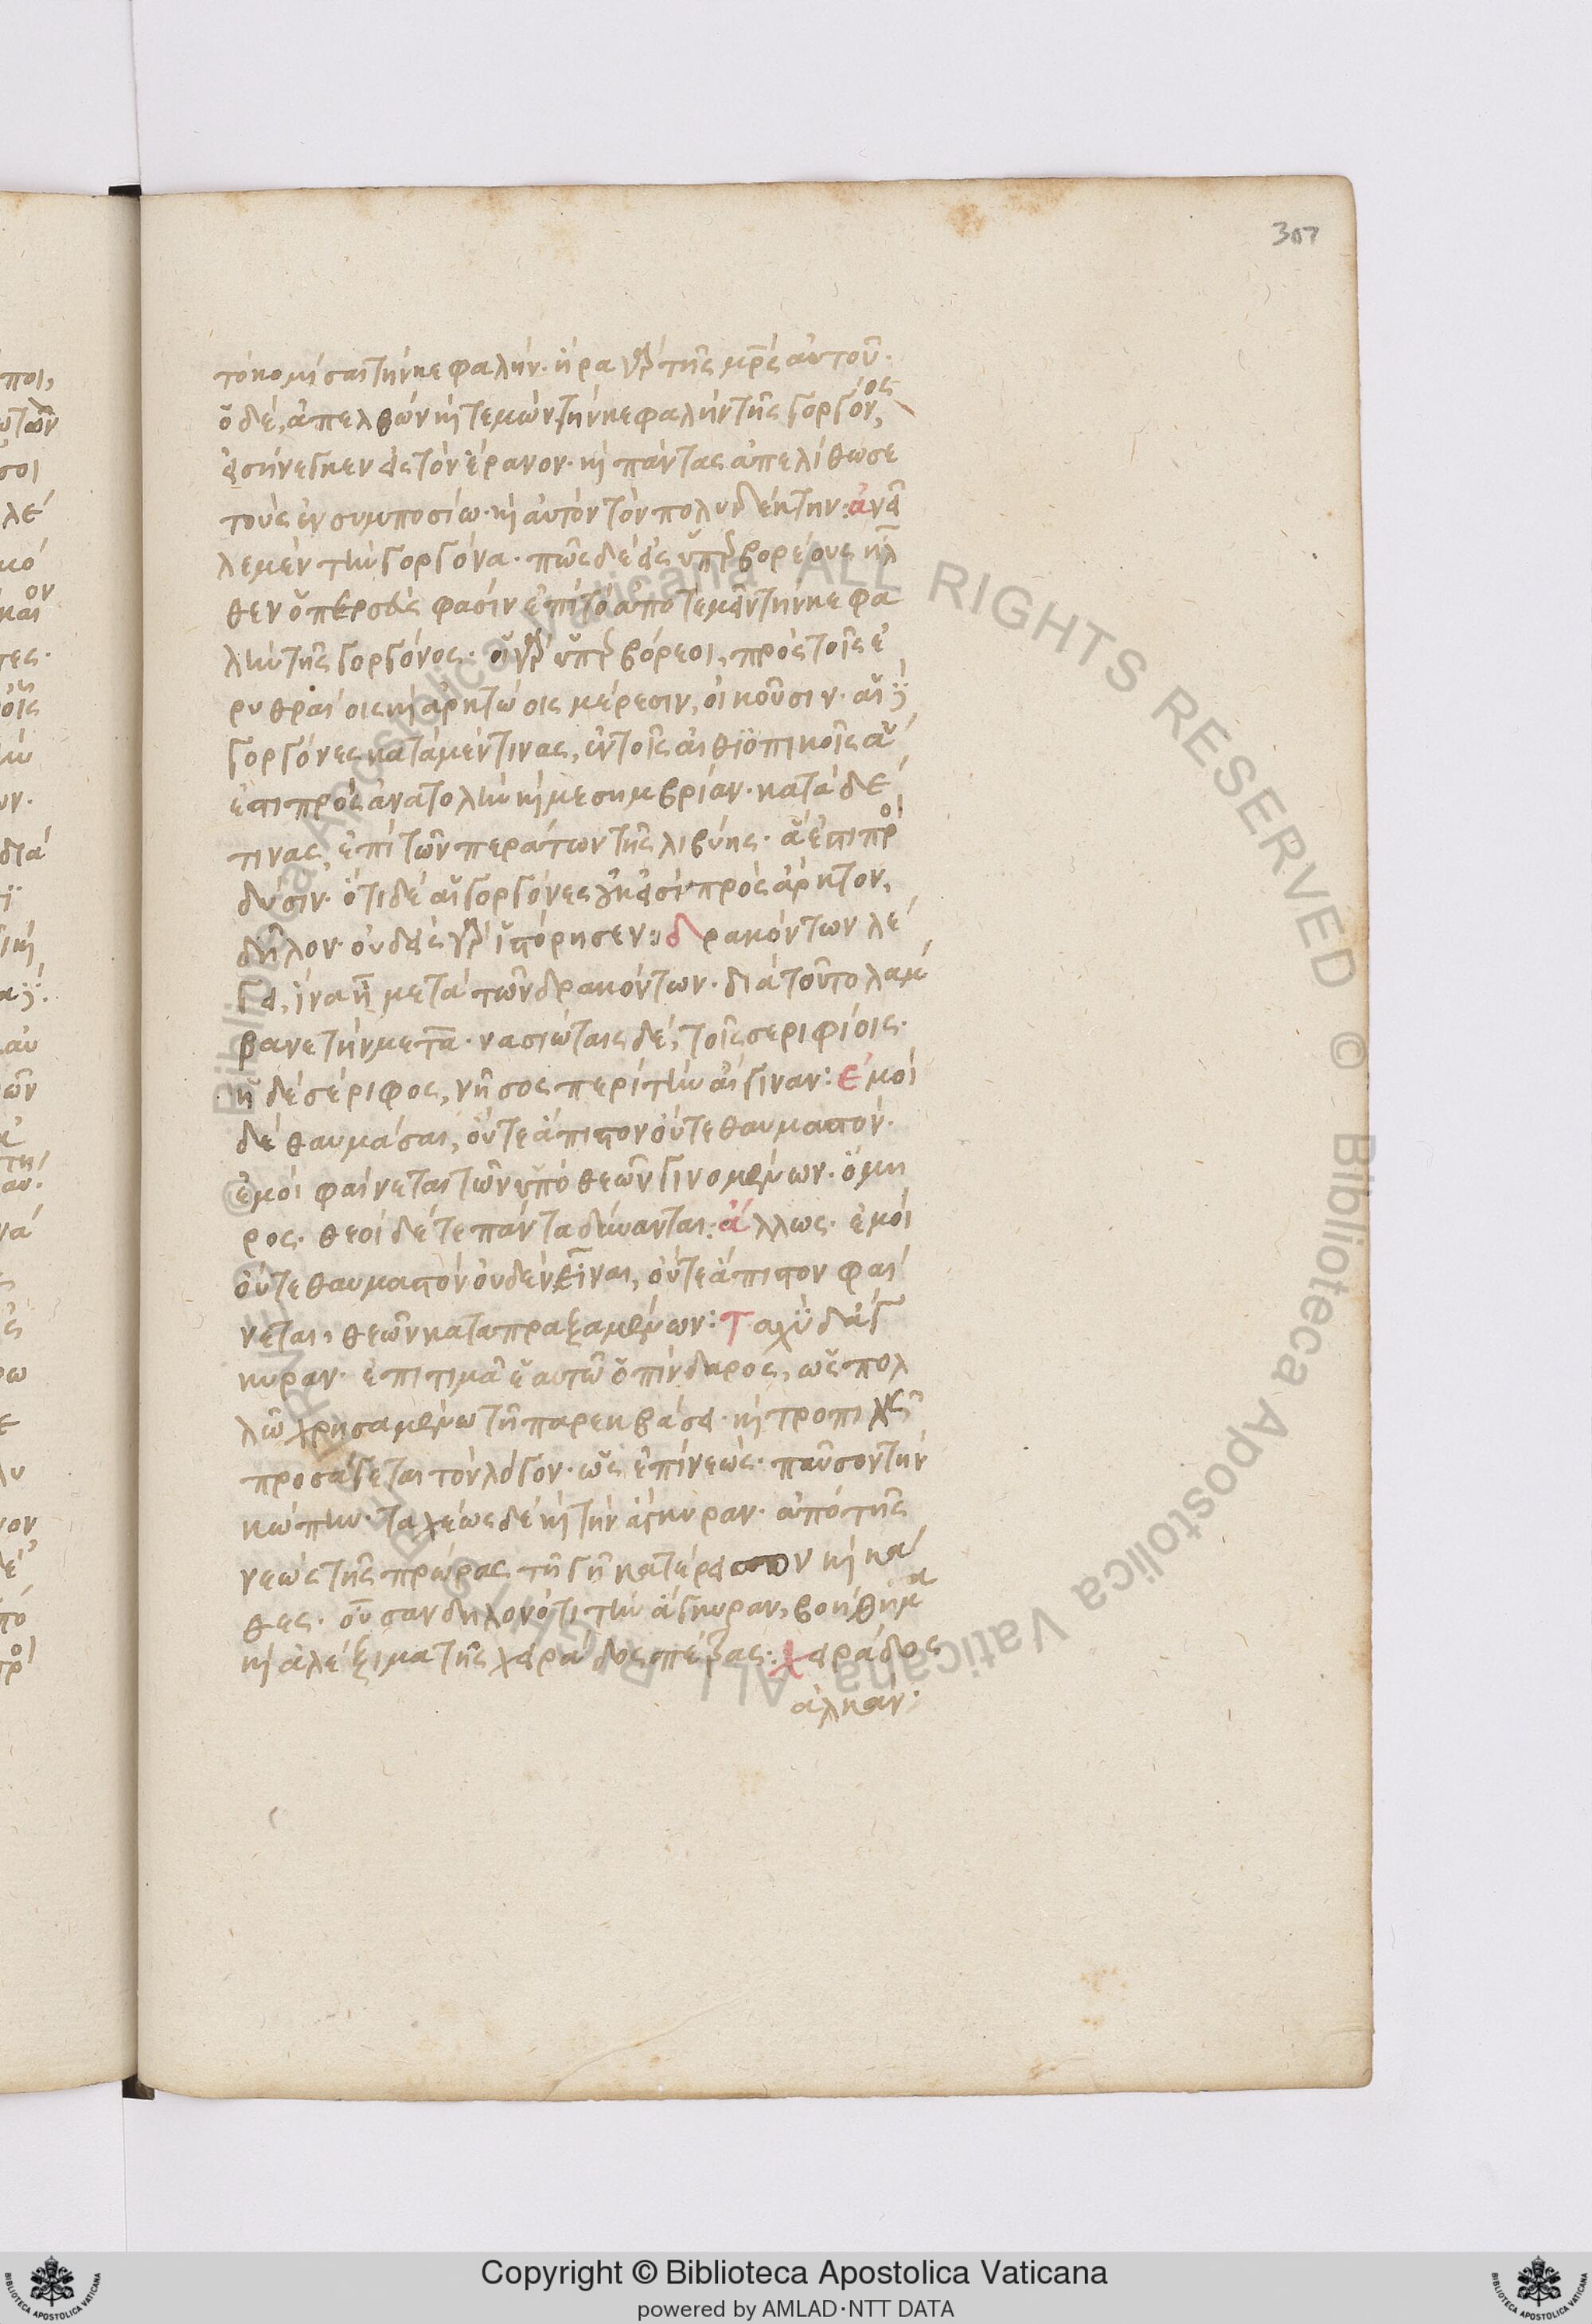 307
τὸ κομίσαι τὴν κεφαλήν· ἤρα γὰρ τῆς μρς αὐτοῦ·
ὁ δὲ, ἀπελθὼν καὶ τεμὼν τὴν κεφαλὴν τῆς γοργόνος,
εἰσήνεγκεν εἰς τὸν ἔρανον· καὶ πάντας ἀπελίθωσε
τοὺς ἐν συμποσίω· καὶ αὐτὸν τὸν πολυδέκτην: ἀνεῖ
λε μὲν τὴν γοργόνα· πῶς δὲ εἰς ὑπερβορέους ἦλ
θεν ὁ περσεὺς φασὶν ἐπὶ τὸ ἀποτεμεῖν τὴν κεφα
λὴν τῆς γοργόνος· οἱ γὰρ ὑπερβόρεοι, πρὸς τοῖς ἐ
ρυθραίοις καὶ ἀρκτώοις μέρεσιν, οἰκοῦσιν· αἱ
γοργόνες κατὰ μέν τινας, ἐν τοῖς αἰθιοπικοῖς ἅ
ἐστι πρὸς ἀνατολὴν καὶ μεσημβρίαν· κατὰ δέ
τινας, ἐπὶ τῶν περάτων τῆς λιβύης· ἅ ἐστι πρὸ
δύσιν· ὅτι δὲ αἱ γοργόνες οἰκεῖσι πρὸς ἄρκτον,
δῆλον· οὐδεὶς γὰρ ἱστόρησεν: δρακόντων λέ
γει, ἵνα ἦ μετὰ τῶν δρακόντων· διὰ τοῦτο λαμ
βανε τὴν μετὰ· νασιώταις δὲ, τοῖς σεριφίοις·
ἡ δὲ σέριφος, νῆσος περὶ τὴν αἴγιναν: ἐμοὶ
δὲ θαυμάσαι, οὔτε ἄπιστον οὔτε θαυμαστόν·
ἐμοὶ φαίνεται τῶν ὑπὸ θεῶν γινομένων· ὅμη
ρος· θεοὶ δέ τε πάντα δύνανται: ἄλλως· ἐμοὶ
οὔτε θαυμαστὸν οὐδὲν εἶναι, οὔτε ἄπιστον φαί
νεται, θεῶν καταπραξαμένων: Ταχὺ δ' ἄγ
κυραν· ἐπιτιμᾶ ἑαυτῶ ὁ πίνδαρος, ὡς πολ
λῶ χρησαμένω τῆ παρεκβάσει· καὶ τροπικῶς
προσάγεται τὸν λόγον· ὡς ἐπὶ νεώς· παῦσον τὴν
κώπην· ταχέως δὲ καὶ τὴν ἄγκυραν· ἀπὸ τῆς
νεὼς τῆς πρώρας τῆ γῆ κατέρεισον καὶ κα
θες· οὖσαν δηλονότι τὴν ἄγκυραν, βοήθημα
καὶ ἀλέξιμα τῆς χειράδος πέτρας: χειράδος
ἀλκάν·
Copyright © Biblioteca Apostolica Vaticana
powered by AMLAD·NTT DATA